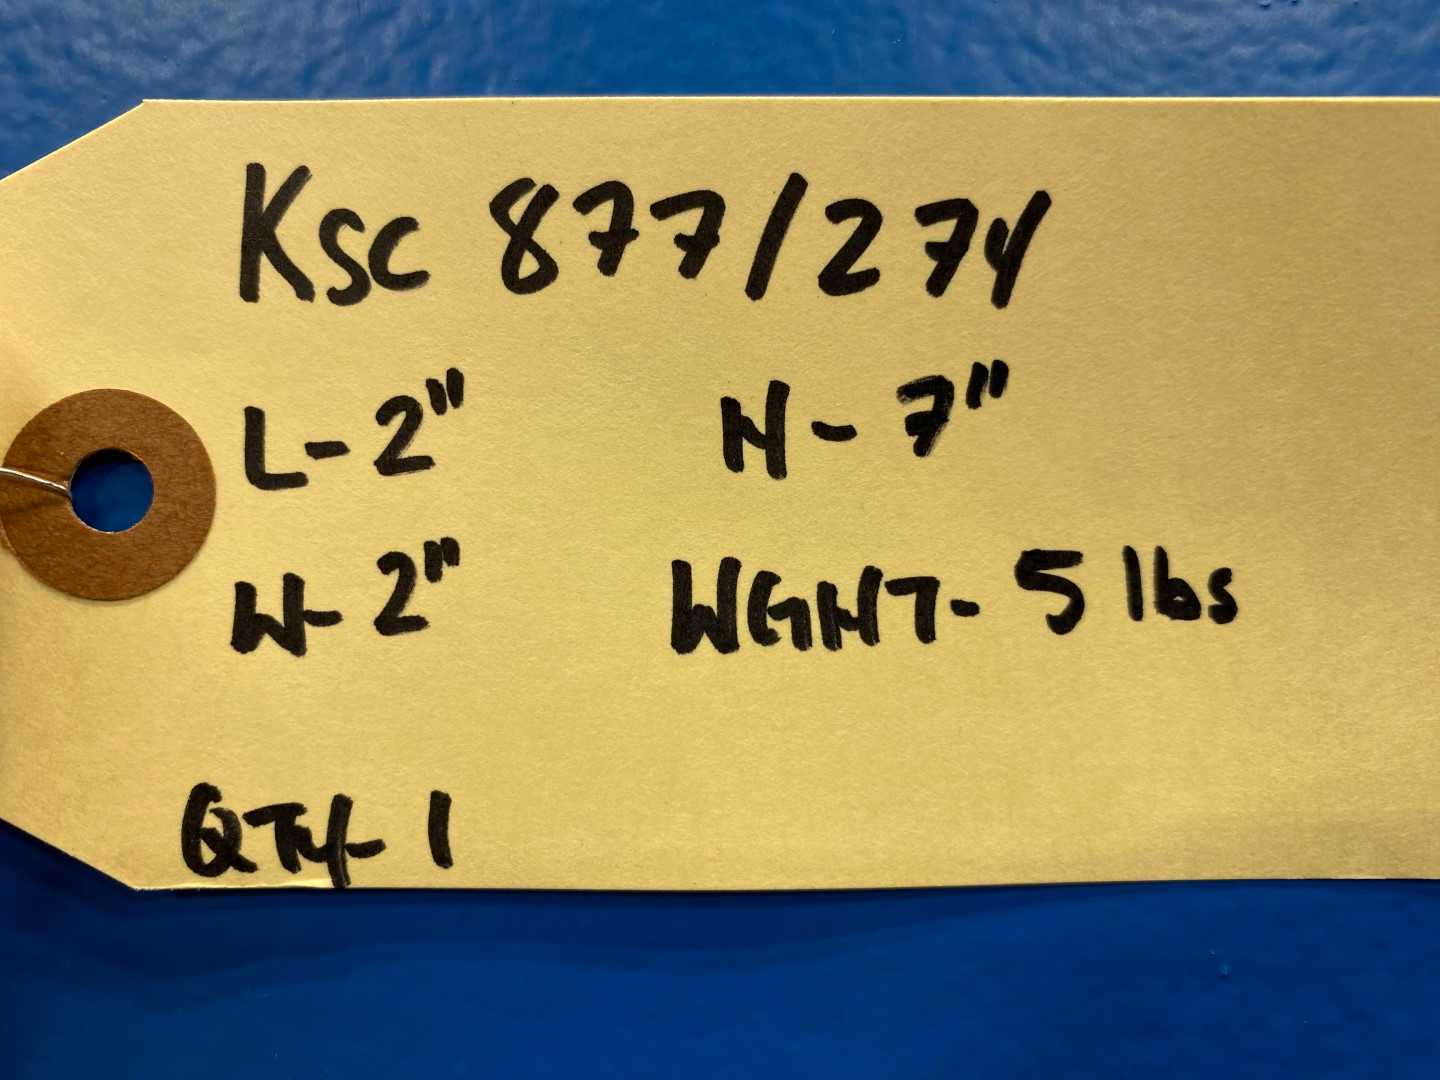 KSC 877/274
L-2" H-7"
W-2" WGHT-5 lbs
QTY-1